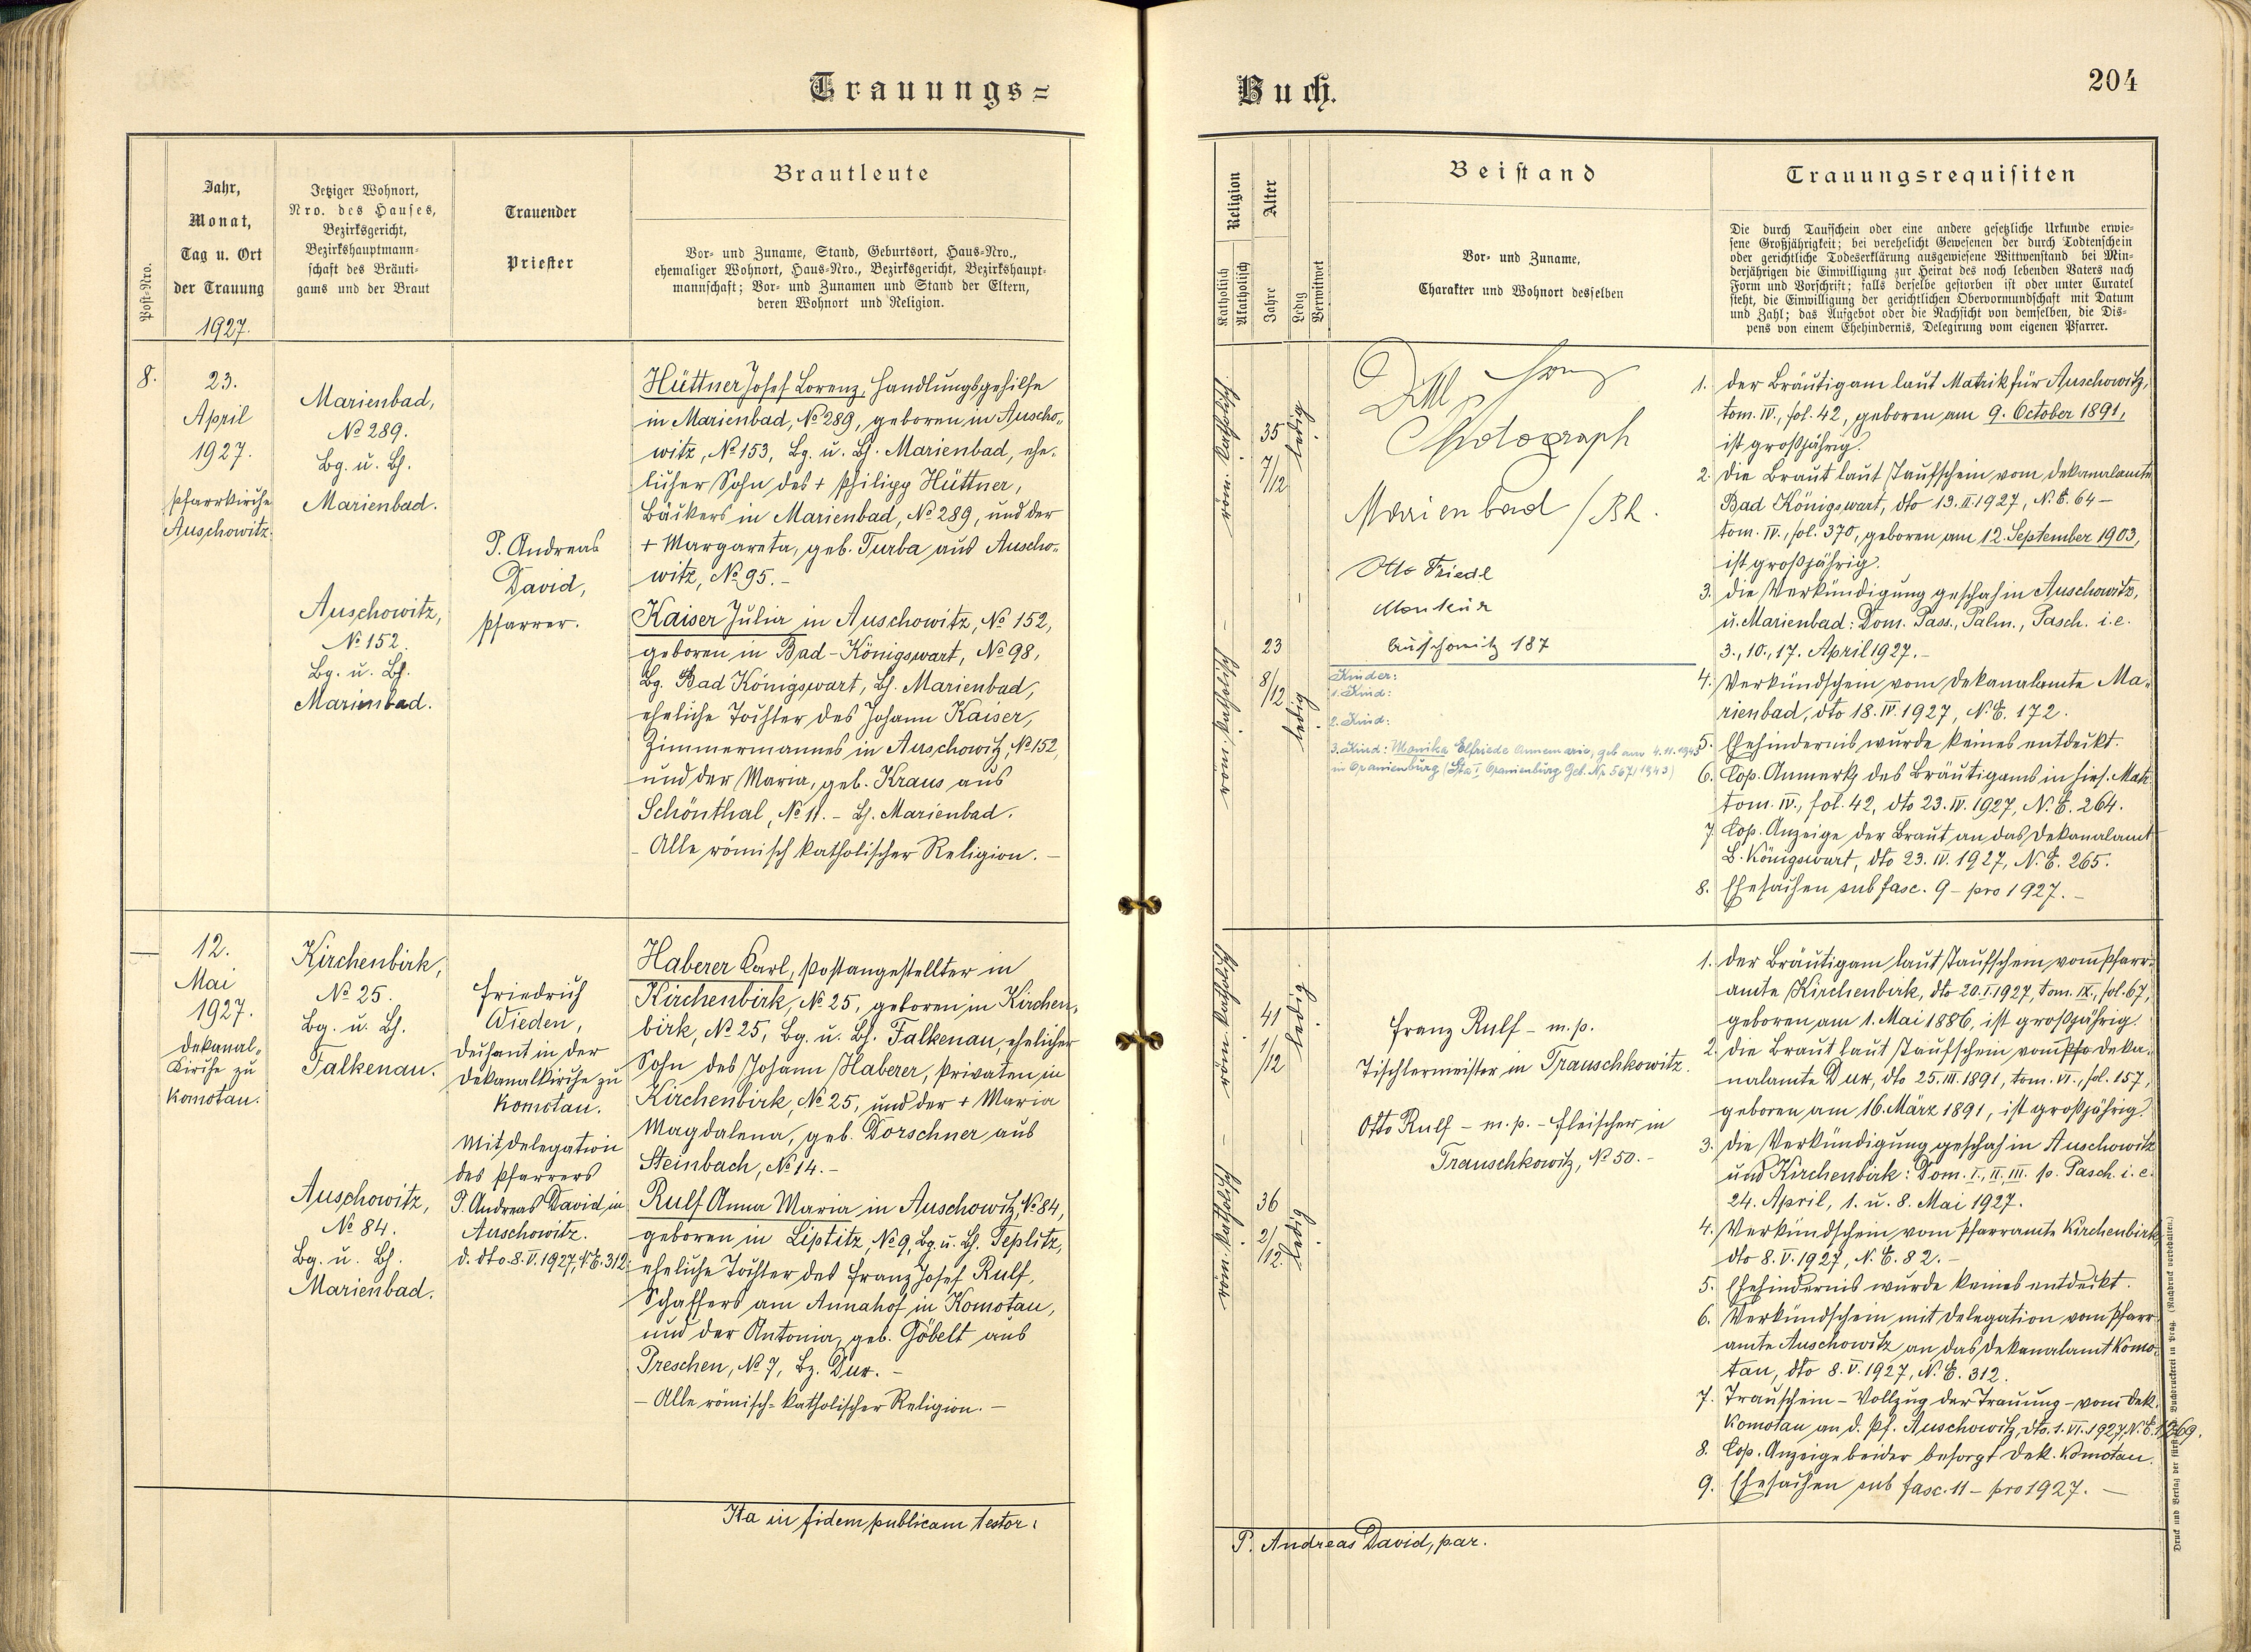 Trauungs=
Buch.
204
Post-Nro.
Jahr,
Monat,
Tag u. Ort
der Trauung
1927.
Jetziger Wohnort,
Nro. des Hauses,
Bezirksgericht,
Bezirkshauptmann-
schaft des Bräuti-
gams und der Braut
Trauender
Priester
Brautleute
Vor- und Zuname, Stand, Geburtsort, Haus-Nro.,
ehemaliger Wohnort, Haus-Nro., Bezirksgericht, Bezirkshaupt-
mannschaft; Vor- und Zunamen und Stand der Eltern,
deren Wohnort und Religion.
Religion
Katholisch
Akatholisch
Alter
Jahre
Ledig
Verwitwet
Beistand
Vor- und Zuname,
Charakter und Wohnort desselben
Trauungsrequisiten
Die durch Taufschein oder eine andere gesetzliche Urkunde erwie-
sene Großjährigkeit; bei verehelicht Gewesenen der durch Todtenschein
oder gerichtliche Todeserklärung ausgewiesene Wittwenstand bei Min-
derjährigen die Einwilligung zur Heirat des noch lebenden Vaters nach
Form und Vorschrift; falls derselbe gestorben ist oder unter Curatel
steht, die Einwilligung der gerichtlichen Obervormundschaft mit Datum
und Zahl; das Aufgebot oder die Nachsicht von demselben, die Dis-
pens von einem Ehehindernis, Delegirung vom eigenen Pfarrer.
8.
23.
April
1927.
Pfarrkirche
Auschowitz.
Marienbad,
No 289.
Bg. u. Bh.
Marienbad.
Auschowitz,
No 152.
Bg. u. Bh.
Marienbad.
P. Andreas
David,
Pfarrer.
Hüttner Josef Lorenz, Handlungsgehilfe
in Marienbad, No 289, geboren in Auscho-
witz, No 153, Bg. u. Bh. Marienbad, ehe-
licher Sohn des + Philipp Hüttner,
Bäckers in Marienbad, No 289, und der
+ Margareta, geb. Turba aus Auscho-
witz, No 95.-
Kaiser Julia in Auschowitz, No 152,
geboren in Bad-Königswart, No 98,
Bg. Bad Königswart, Bh. Marienbad,
eheliche Tochter des Johann Kaiser,
Zimmermannes in Auschowitz, No 152,
und der Maria, geb. Kraus aus
Schönthal, No 11.- Bh. Marienbad.
- Alle römisch katholischer Religion. -
röm. katholisch -
35
7/12
ledig.
röm. katholisch
23
8/12
ledig.
Photograph
Marienbad / Bh.
Otto Friedl
Monteur
Auschowitz 187
Kinder:
1. Kind:
2. Kind:
3. Kind: Monika Elfriede Annemarie, geb. am 4.11.1943
in Oranienburg (StA I, Oranienburg Geb. Nr. 567/1943)
1. Der Bräutigam laut Matrik für Auschowitz,
tom. IV., fol. 42, geboren am 9. October 1891,
ist großjährig.
2. Die Braut laut Taufschein vom Dekanalamte
Bad Königswart, dto 13.II.1927, N.E. 64 -
tom. IV., fol. 370, geboren am 12. September 1903,
ist großjährig.
3. Die Verkündigung geschah in Auschowitz,
u. Marienbad: Dom. Pass., Palm., Pasch. i.e.
3., 10., 17. April 1927.-
4. Verkündschein vom Dekanalamte Ma-
rienbad, dto 18.IV.1927, N.E. 172.
5. Ehehindernis wurde keines entdeckt.
6. Cop. Anmerk. des Bräutigams in hies. Matr.
tom. IV., fol. 42, dto 23.IV.1927, N.E. 264.
7. Cop. Anzeige der Braut an das Dekanalamt
B. Königswart, dto 23.IV.1927, N.E. 265.
8. Ehesachen sub fasc. 9 - pro 1927.-
12.
Mai
1927.
Dekanal-
Kirche zu
Komotau.
Kirchenbirk,
No 25.
Bg. u. Bh.
Falkenau.
Auschowitz,
No 84.
Bg. u. Bh.
Marienbad.
Friedrich
Wieden,
Dechant in der
Dekanalkirche zu
Komotau.
Mit Delegation
des Pfarrers
P. Andreas David in
Auschowitz.
d. dto. 8.V.1927, N.E. 312.
Haberer Karl, Postangestellter in
Kirchenbirk, No 25, geboren in Kirchen-
birk, No 25, Bg. u. Bh. Falkenau, ehelicher
Sohn des Johann Haberer, Privaten in
Kirchenbirk, No 25, und der + Maria
Magdalena, geb. Dorschner aus
Steinbach, No 14.-
Rulf Anna Maria in Auschowitz, No 84,
geboren in Liptitz, No 9, Bg. u. Bh. Teplitz,
eheliche Tochter des Franz Josef Rulf,
Schaffers am Annahof in Komotau,
und der Antonia, geb. Göbelt aus
Preschen, No 7, Bz. Dux.-
- Alle römisch-katholischer Religion.-
röm. katholisch -
41
1/12
ledig.
röm. katholisch
36
2/12.
ledig.
Franz Rulf - m.p.
Tischlermeister in Trauschkowitz.
Otto Rulf - m.p. - Fleischer in
Trauschkowitz, No 50.-
1. Der Bräutigam laut Taufschein vom Pfarr-
amte Kirchenbirk, dto 20.I.1927, tom. IX., fol. 67,
geboren am 1. Mai 1886, ist großjährig.
2. Die Braut laut Taufschein vom Pfa Deka-
nalamte Dux, dto 25.III.1891, tom. VI., fol. 157,
geboren am 16. März 1891, ist großjährig.
3. Die Verkündigung geschah in Auschowitz
und Kirchenbirk: Dom. I., II., III. p. Pasch. i.e.
24. April, 1. u. 8. Mai 1927.
4. Verkündschein vom Pfarramte Kirchenbirk,
dto 8.V.1927, N.E. 82.-
5. Ehehindernis wurde keines entdeckt.
6. Verkündschein mit Delegation vom Pfarr-
amte Auschowitz an das Dekanalamt Komo-
tau, dto 8.V.1927, N.E. 312.
7. Trauschein - Vollzug der Trauung - vom Dek.
Komotau an d. Pf. Auschowitz, dto. 1.VI.1927, N.E. 1269.
8. Cop. Anzeige beider besorgt Dek. Komotau.
9. Ehesachen sub fasc. 11 - pro 1927. -
Ita in fidem publicam testor:
P. Andreas David, par.
Druck und Verlag der fürst Buchdruckerei in Prag. (Nachdruck vorbehalten.)